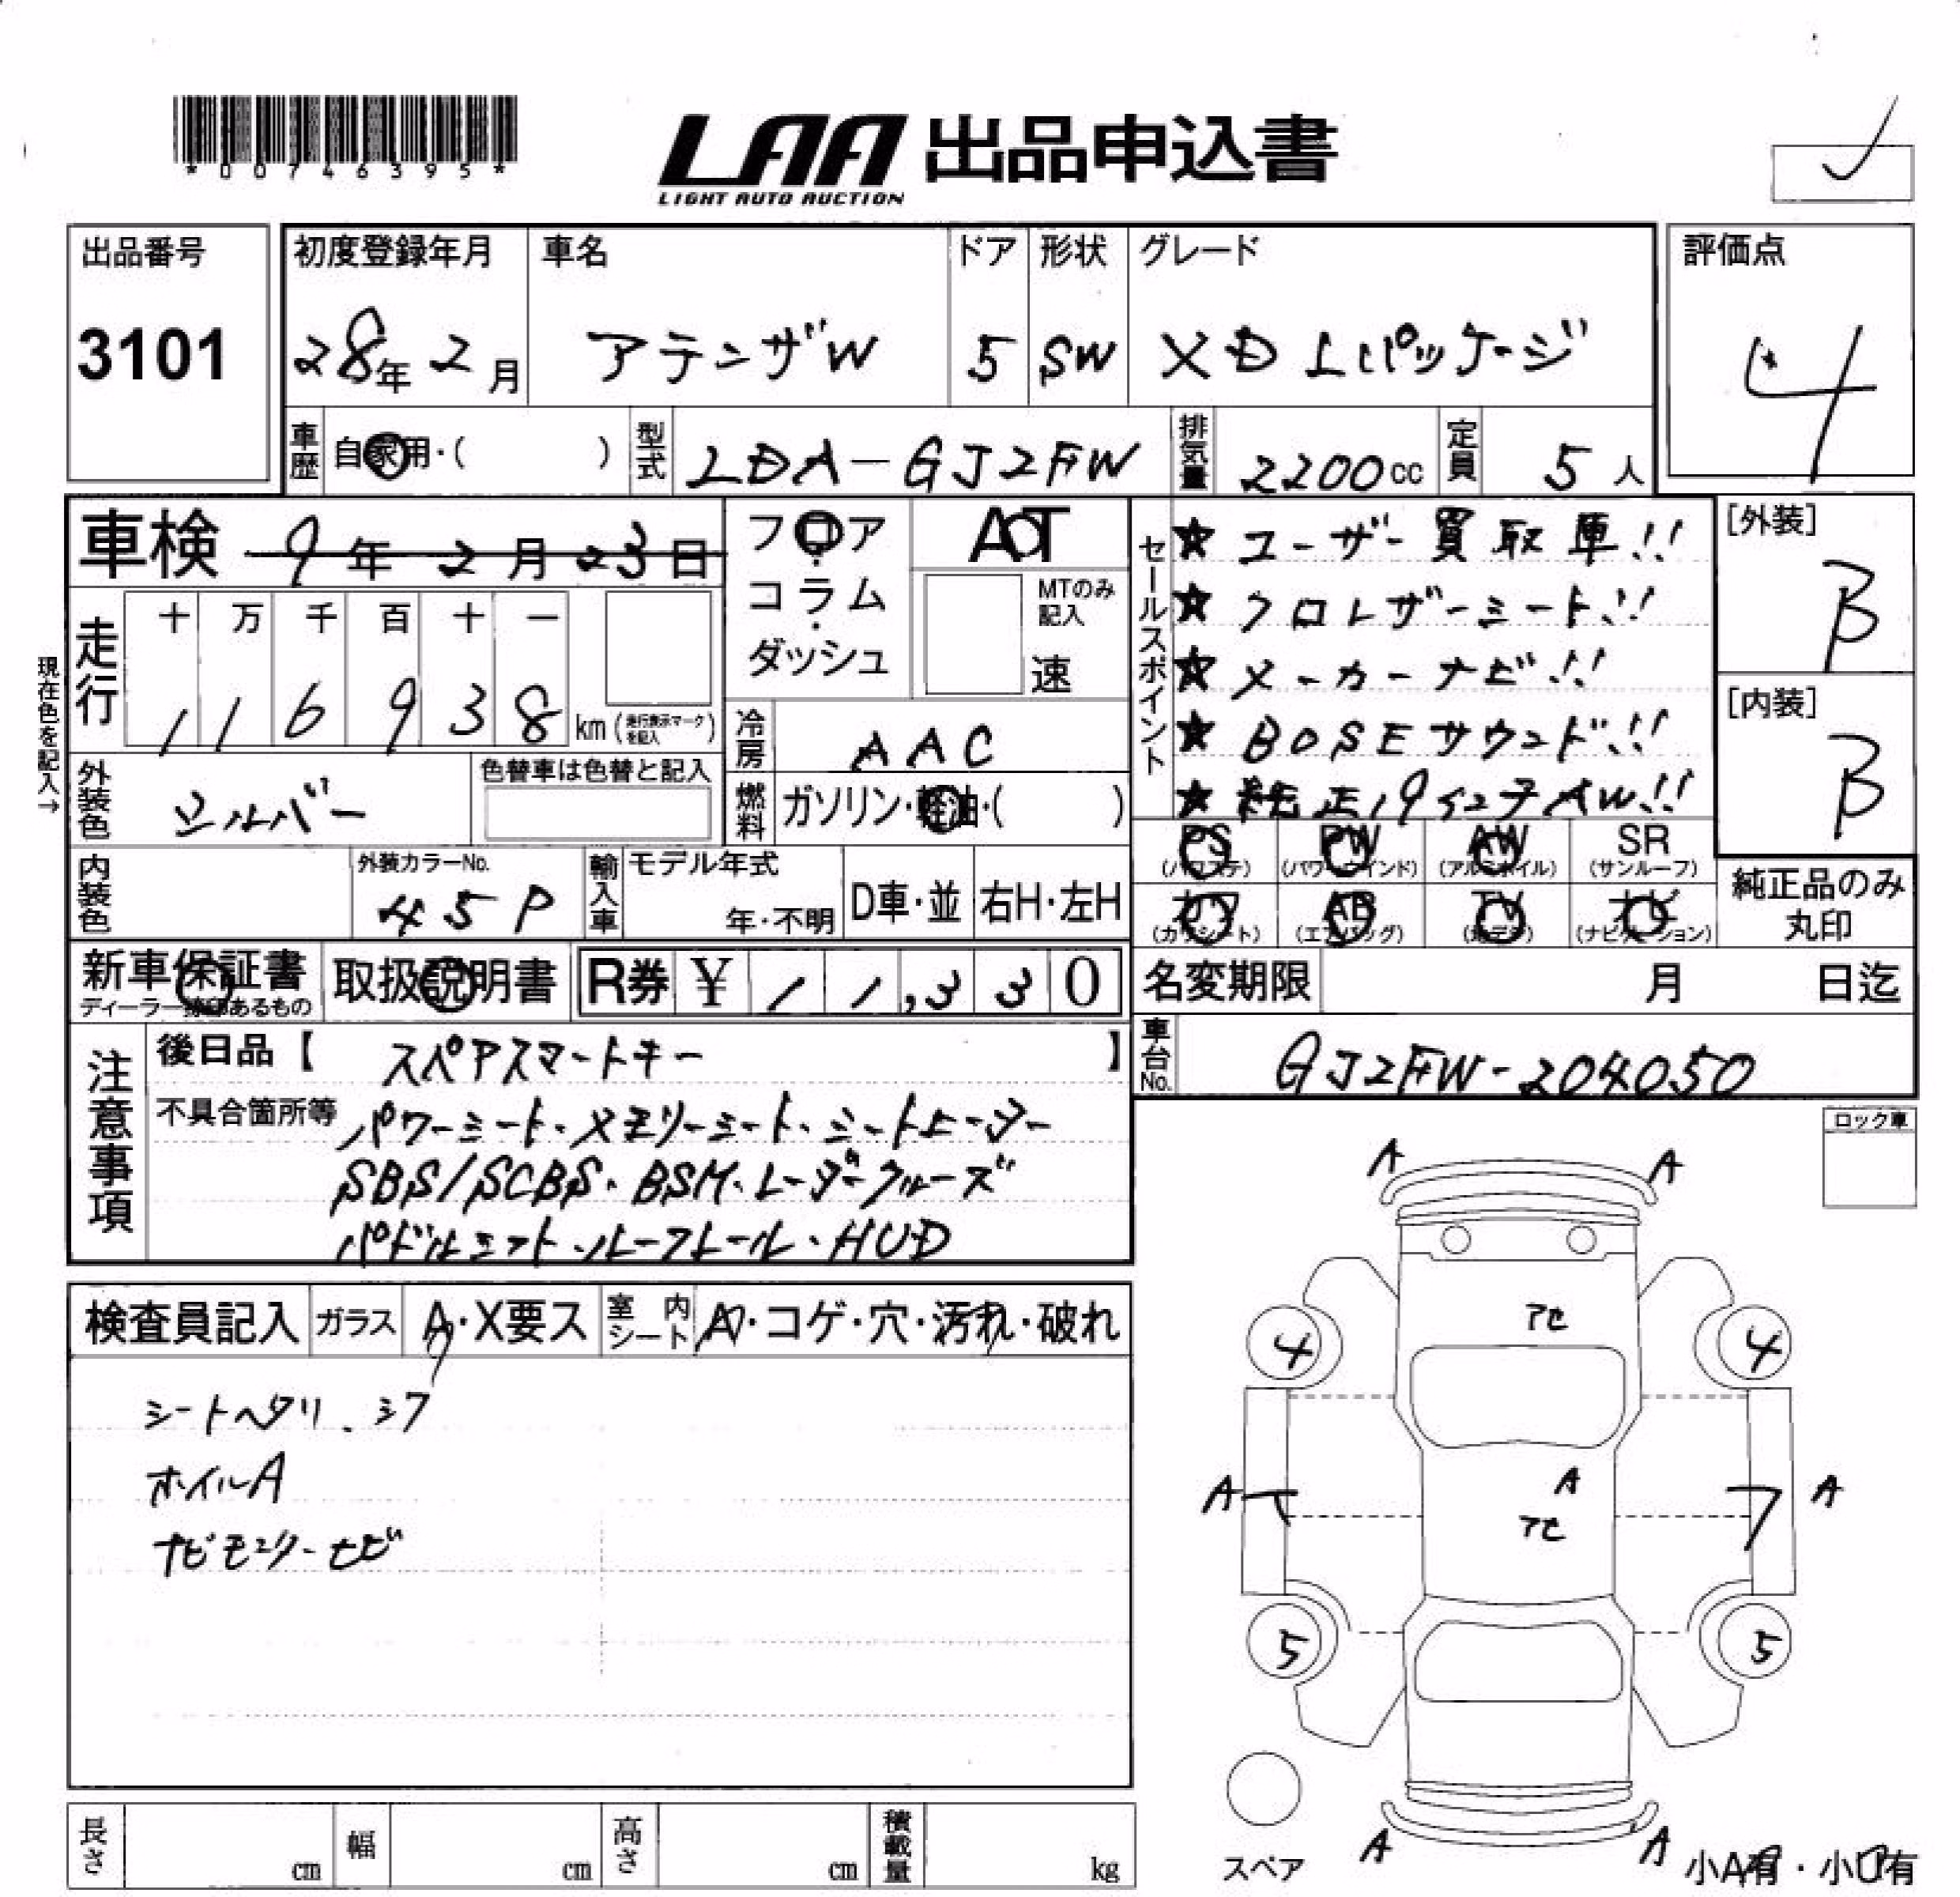 *00746395*
LAA 出品申込書
LIGHT AUTO AUCTION
出品番号
3101
初度登録年月
28年 2月
車名
アテンザW
ドア
5
形状
SW
グレード
XD Lパッケージ
評価点
4
車歴 自家用・( )
型式 LDA-GJ2FW
排気量 2200cc
定員 5人
車検 9年 2月 23日
フロア・コラム・ダッシュ
AT
MTのみ記入
速
セールスポイント
★ユーザー買取車!!
★クロレザーシート!!
★メーカーナビ!!
★BOSEサウンド!!
★純正19インチAW!!
[外装]
B
[内装]
B
現在色を記入→
走行
十 万 千 百 十 一
1 1 6 9 3 8 km (走行表示マークを記入)
冷房 AAC
外装色 シルバー
色替車は色替と記入
燃料 ガソリン・軽油・( )
内装色
外装カラーNo.
45P
輸入車
モデル年式
年・不明
D車・並
右H・左H
PS (パワステ)
PW (パワーウインド)
AW (アルミホイル)
SR (サンルーフ)
カワ (カワシート)
AB (エアバッグ)
TV (地デジ)
ナビ (ナビゲーション)
純正品のみ丸印
新車保証書
取扱説明書
R券 ¥ 11,330
名変期限 月 日迄
車台No. GJ2FW-204050
注意事項
後日品【 スペアスマートキー 】
不具合箇所等 パワーシート・メモリーシート・シートヒーター
SBS/SCBS・BSM・レーダークルーズ
パドルシフト・ルーフレール・HUD
ロック車
検査員記入
ガラス A・X要ス
室内シート ・コゲ・穴・汚れ・破れ
シートヘタリ、シワ
ホイルA
ナビモニター セビ
A A
アセ
4 4
A A
A
アセ
5 5
A A
スペア
小A有・小U有
長さ cm
幅 cm
高さ cm
積載量 kg